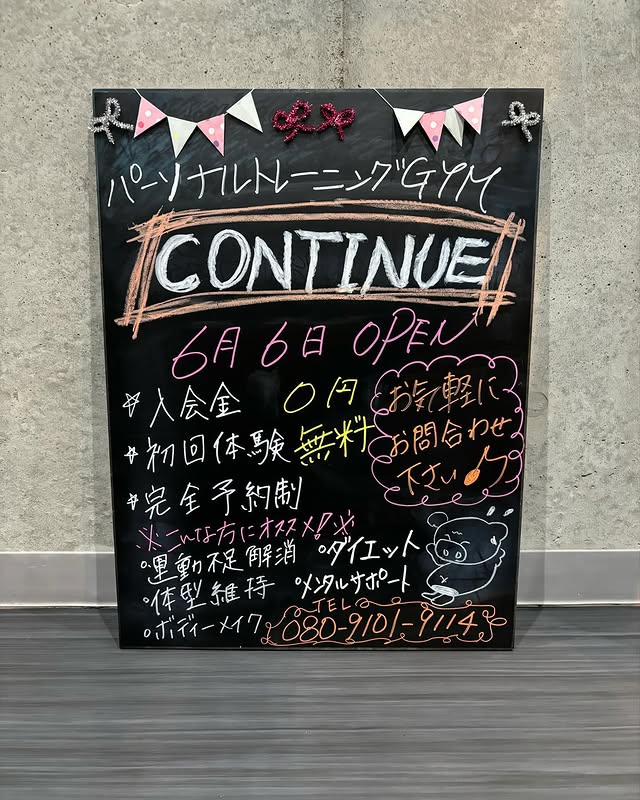 パーソナルトレーニングGYM
CONTINUE
6月6日 OPEN
☆入会金 0円
☆初回体験 無料
☆完全予約制
お気軽に
お問合わせ
下さい♪
※こんな方にオススメ!※
°運動不足解消 °ダイエット
°体型維持 °メンタルサポート
°ボディーメイク
TEL
080-9101-9114